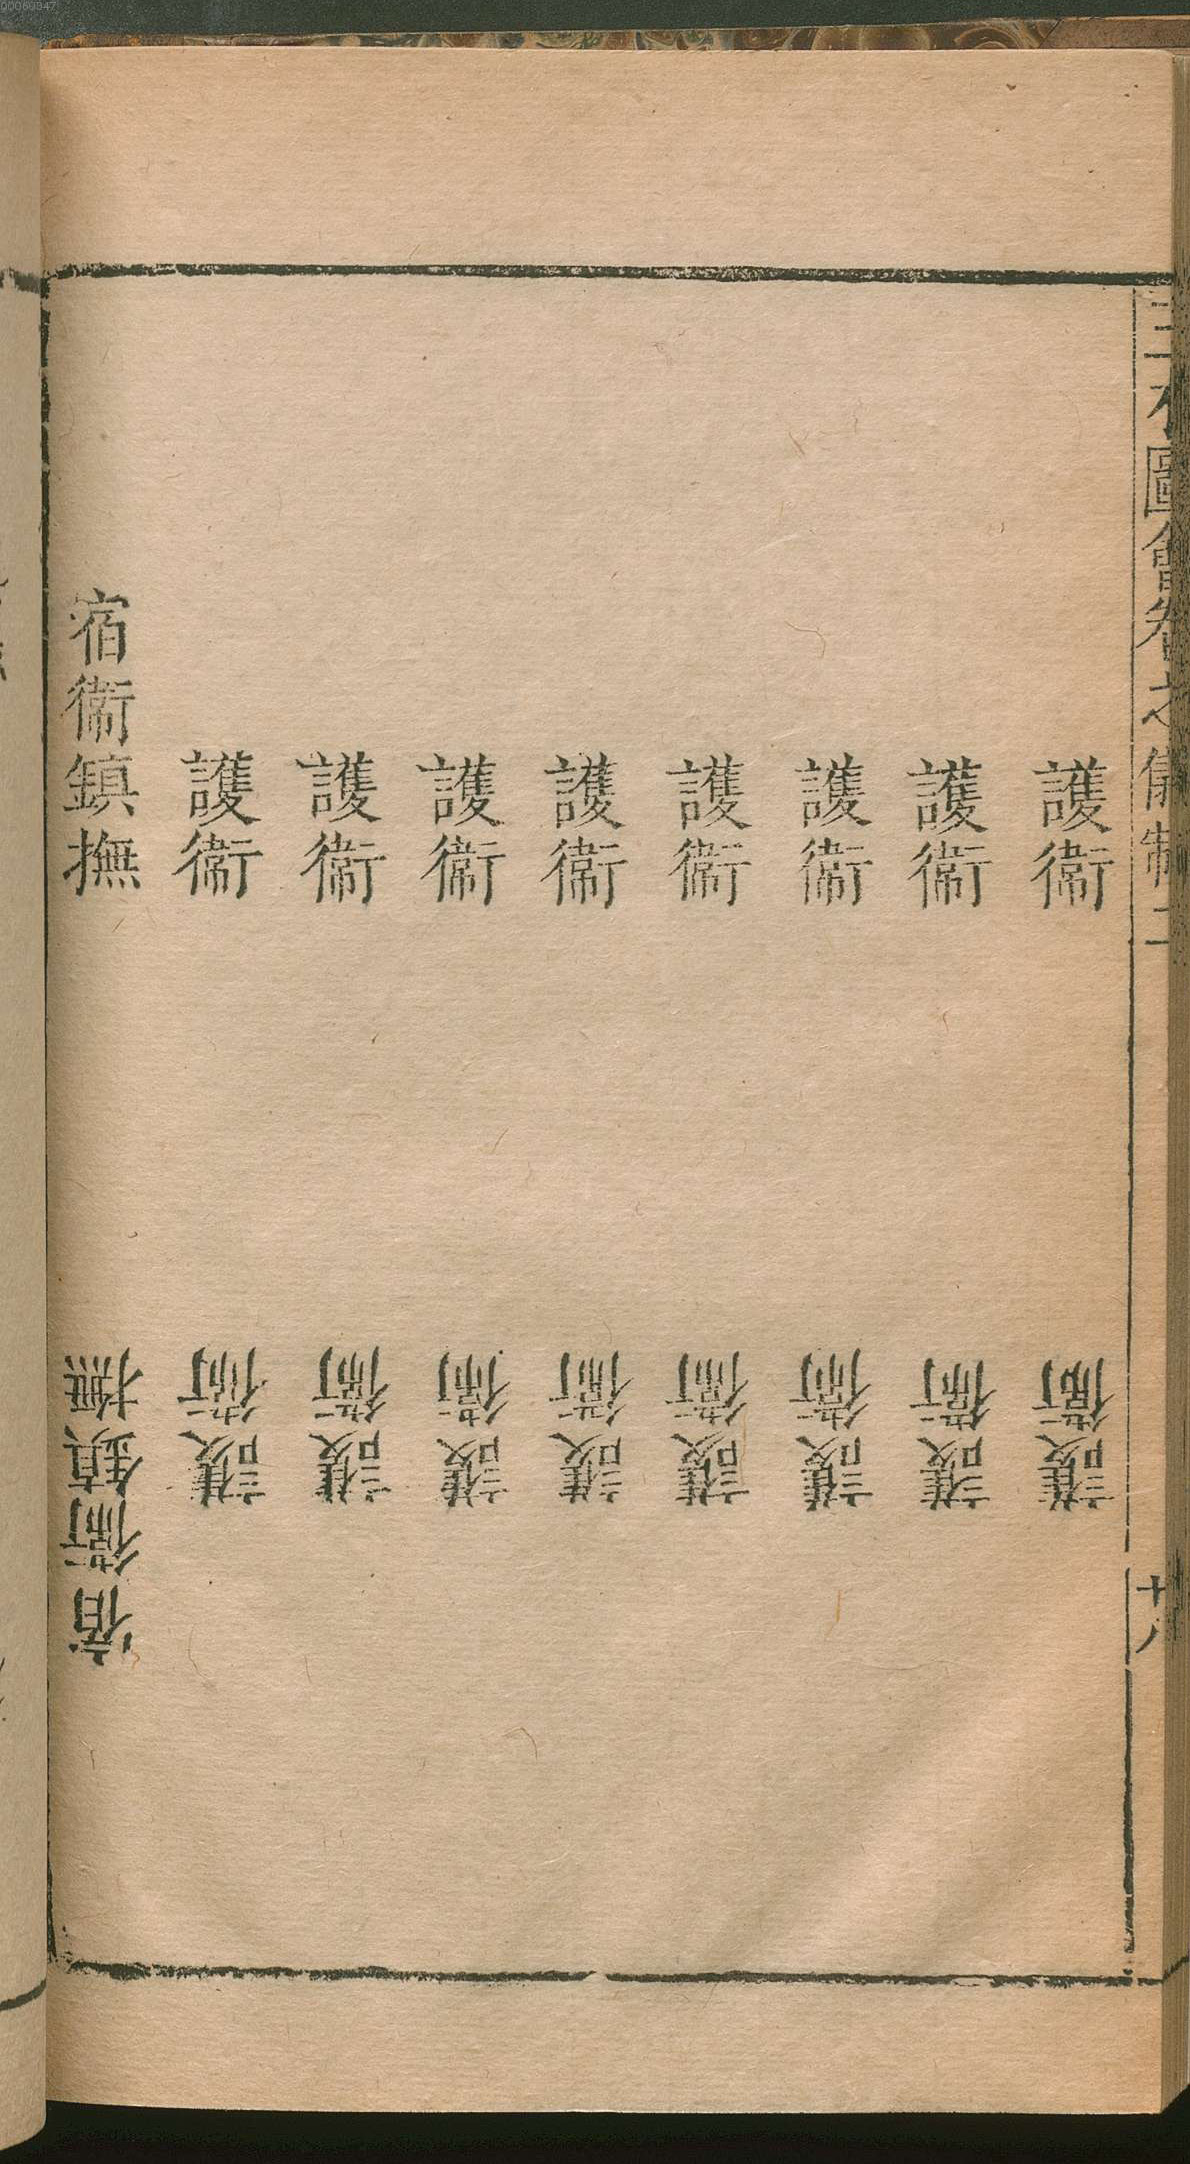 三才圖會卷之儀制二
廿八
護衛
護衛
護衛
護衛
護衛
護衛
護衛
護衛
宿衛鎮撫
護衛
護衛
護衛
護衛
護衛
護衛
護衛
護衛
宿衛鎮撫
00060347